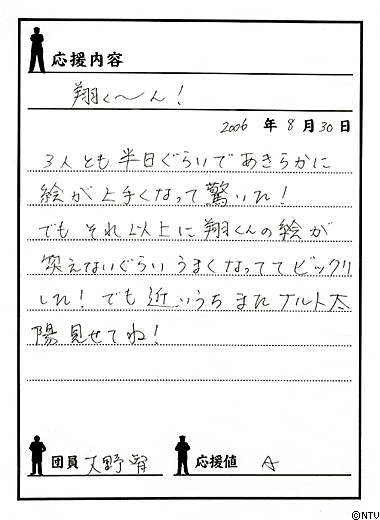 応援内容
翔く〜ん！
2006 年 8 月 30 日
3人とも半日ぐらいであきらかに
絵が上手くなって驚いた！
でもそれ以上に翔くんの絵が
笑えないぐらいうまくなっててビックリ
した！でも近いうちまたナルト太
陽見せてね！
団員 大野智 応援値 A
©NTV